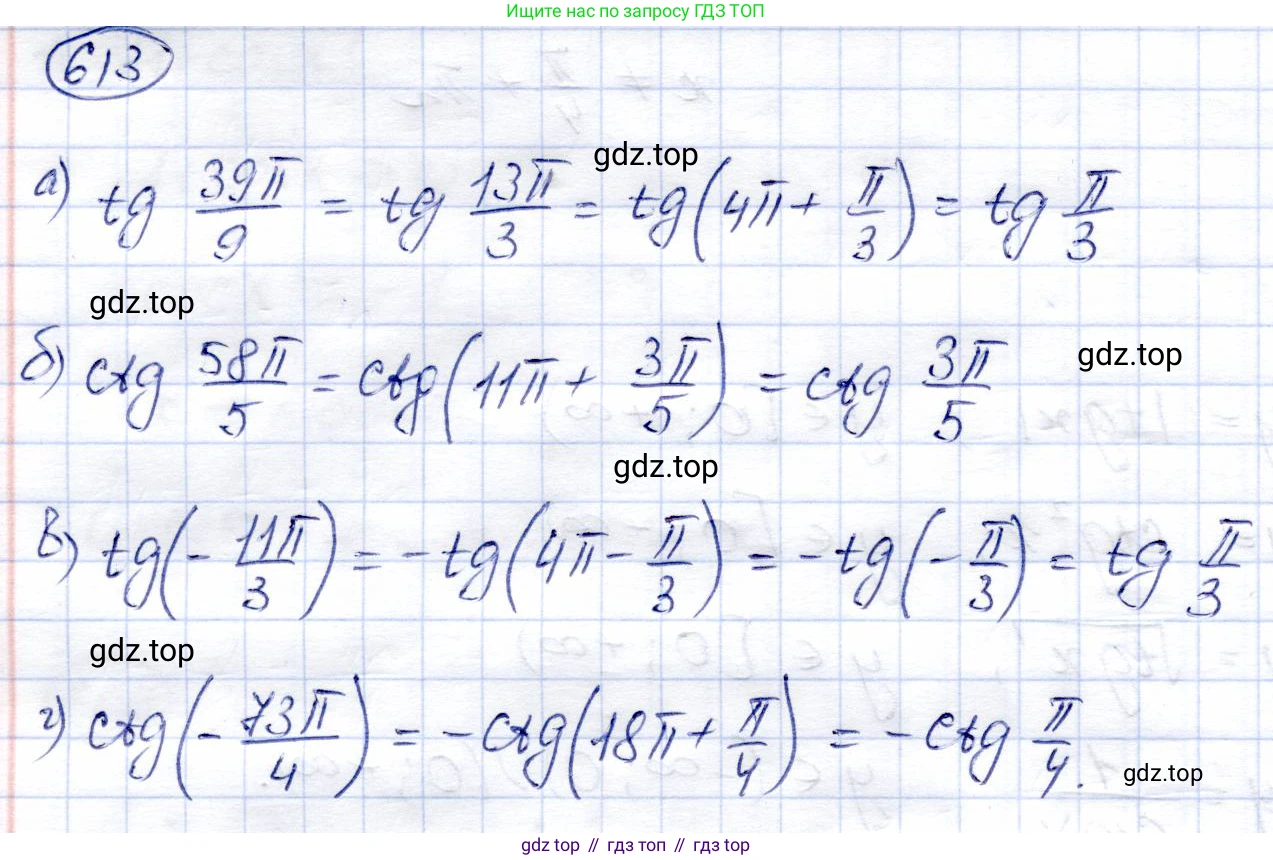 Ищите нас по запросу ГДЗ ТОП
613
а) tg 39π/9 = tg 13π/3 = tg(4π + π/3) = tg π/3
gdz.top
gdz.top
б) ctg 58π/5 = ctg(11π + 3π/5) = ctg 3π/5
gdz.top
gdz.top
в) tg(- 11π/3) = - tg(4π - π/3) = - tg(- π/3) = tg π/3
gdz.top
г) ctg(- 73π/4) = - ctg(18π + π/4) = - ctg π/4.
gdz.top
gdz top // гдз топ // gdz top